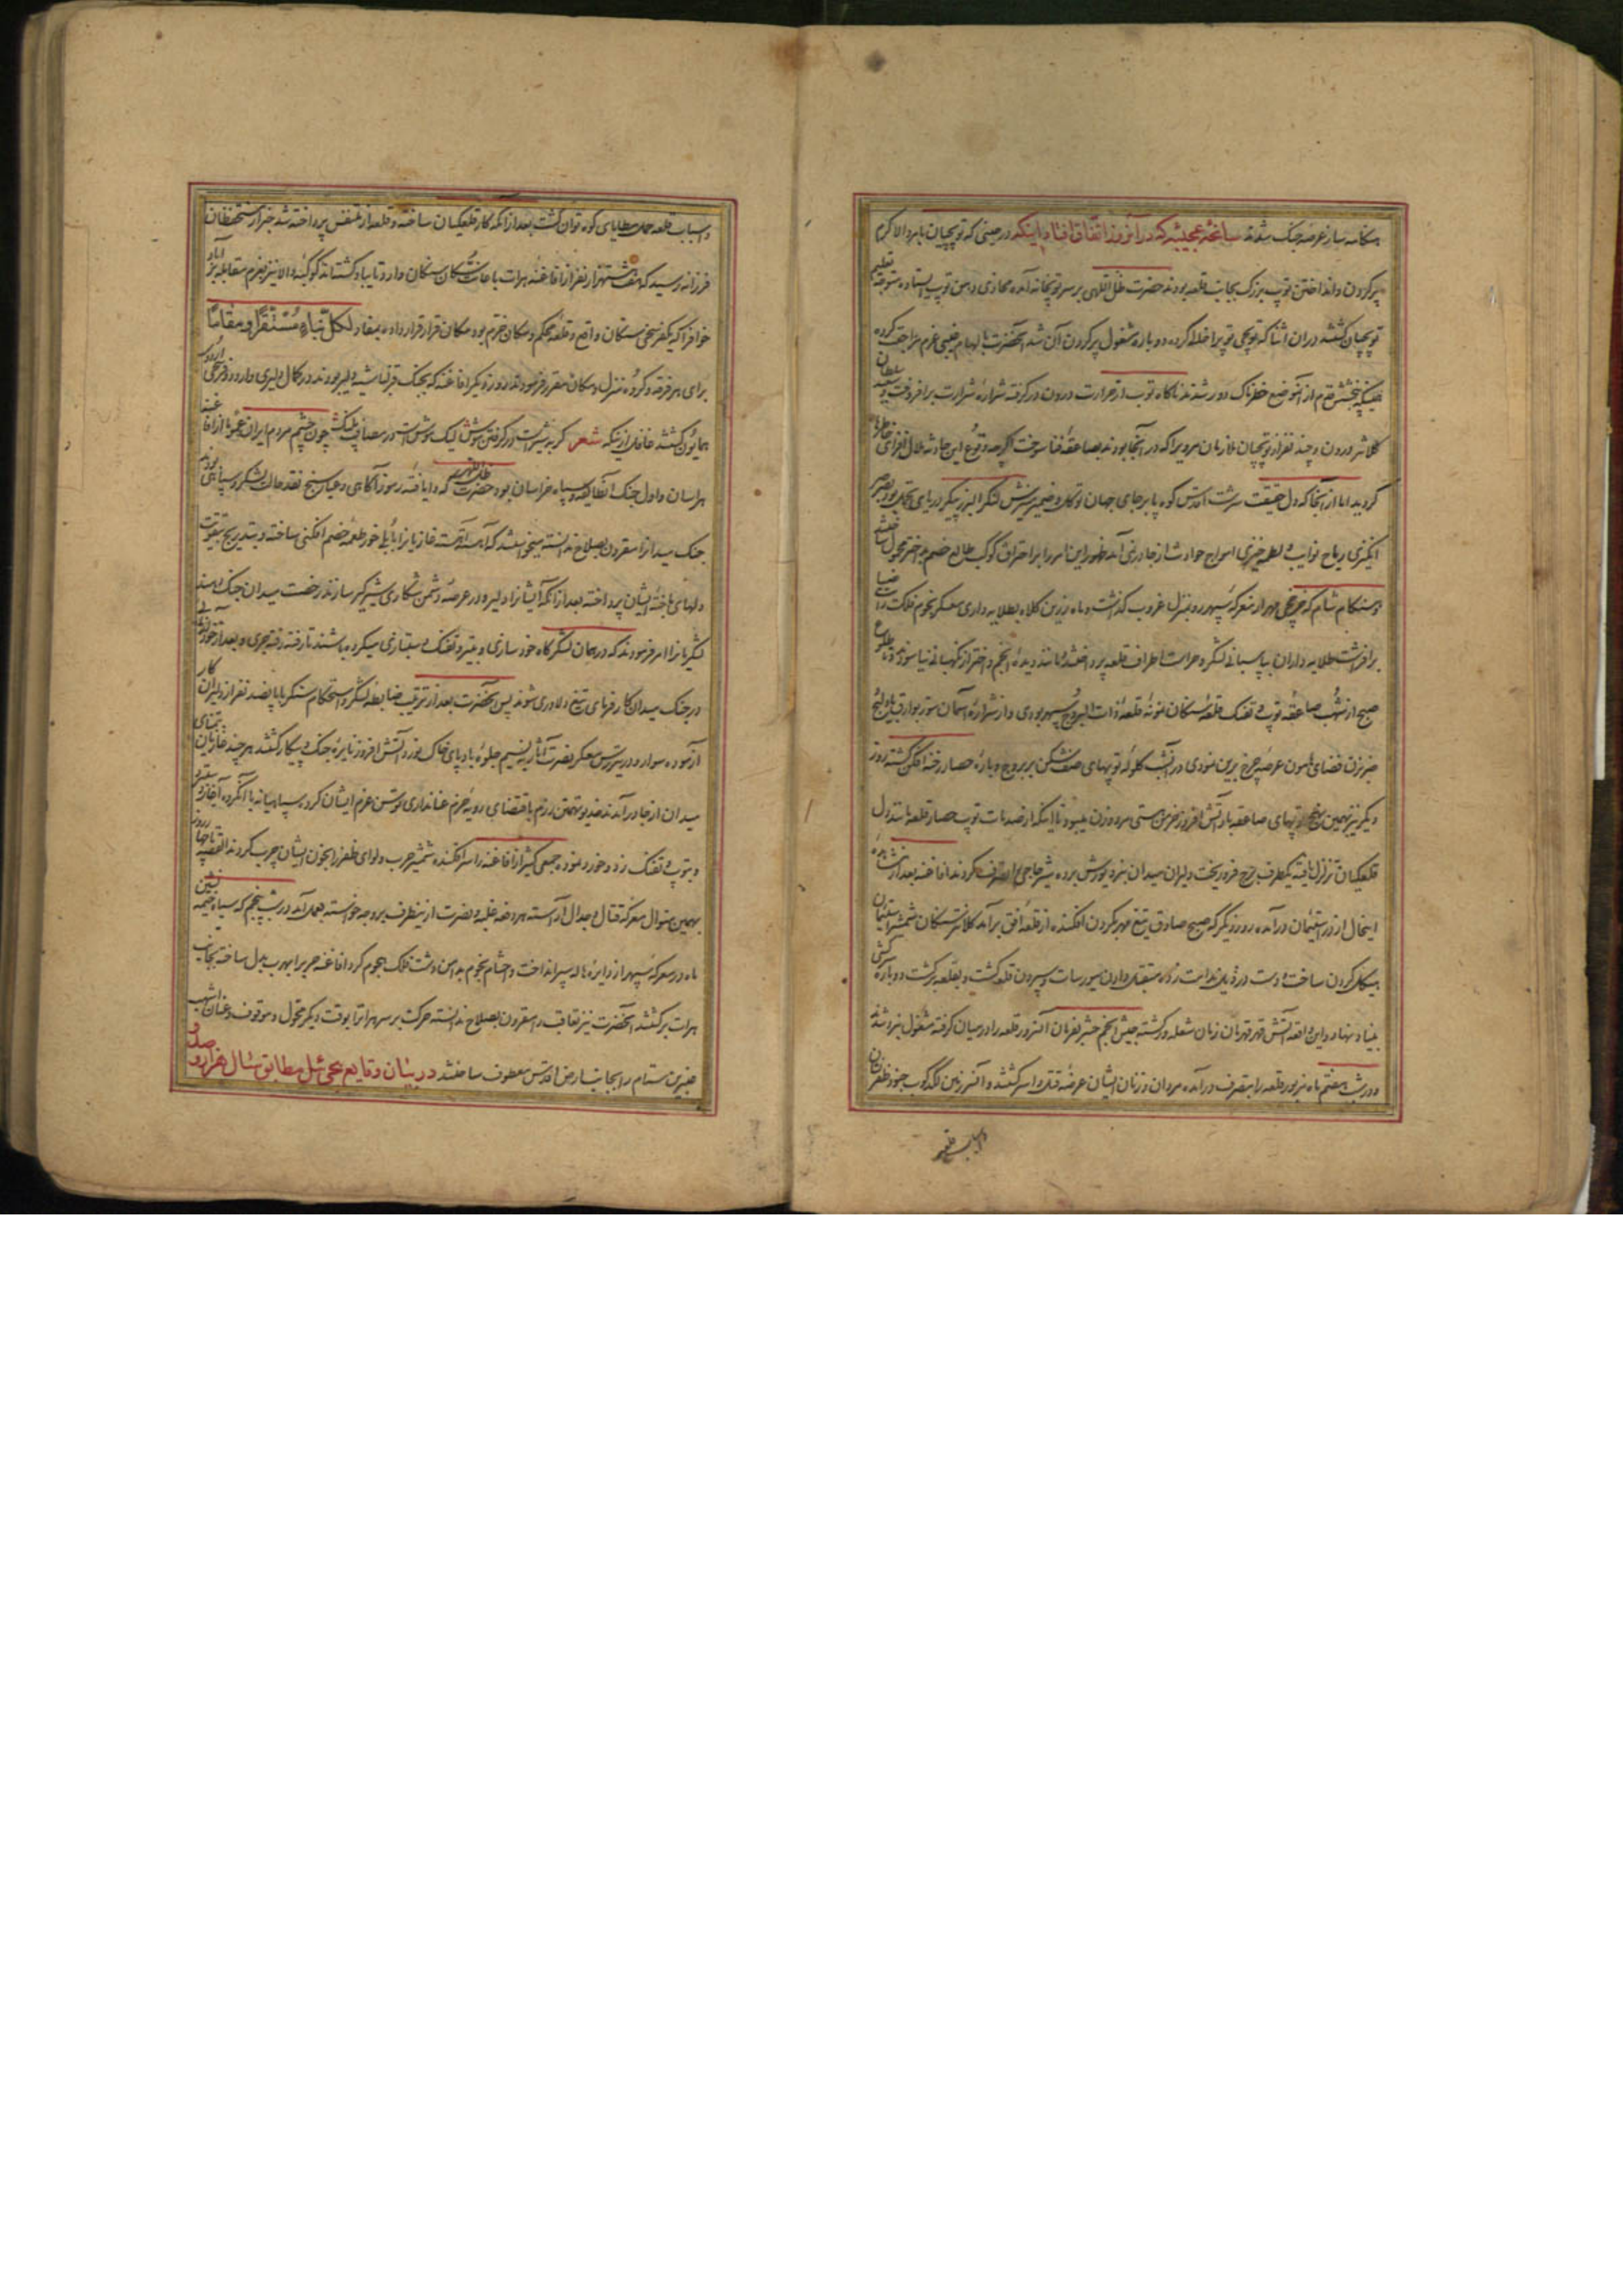 هنگامه ساز عرصه جنک شدند سانحه عجیبه که در آنروز اتفاق افتاد اینکه در حینی که توپچیان بامر والا کرم
پر کردن و انداختن توپ بزرک بجانب قلعه بودند حضرت ظل اللهی بر سر توپخانه آمده محاذی دهن توپ ایستاده متوجه تعلیم
توپچیان کشتند در ان اثنا که توپچی توپرا خالی کرده دوباره مشغول پر کردن آن شد آنحضرت بالهام غیبی عزم مراجعت کرده
همینکه پنجشش قدم از آنموضع خطرناک دور شدند ناکاه توپ از حرارت درون در کرفته شراره شرارت برافروخت و سلطان
کلانتر درون و چند نفر از توپچیان ملازمان مرویرا که در آنجا بودند بصاعقه فنا سوخت اکرچه وقوع این حادثه ملال افزای خاطرها
کردید اما از آنجا که دل حقیقت سرشت اقدس کوه پابرجای جهان توکل و ضمیر منیرش لنکر البرز پیکر دریای تحمل بود بصرصر
انکیزی ریاح نوایب و لطمه خیزی امواج حوادث از جا در نمی آمد ظهور این امر را بر احتراق کوکب طالع خصم بد اختر محمول داشته
و هنکام شام که مهر از معرکه سپهر رو بمنزل غروب کذاشت و ماه زرین کلاه بطلایه داری معسکر نجوم فلک رایت ضیا
برافراشت طلایه داران بپاسبانی لشکر و حراست اطراف قلعه پرداخته مانند دیده انجم و اختر از نکهبانی نیاسودند و تا طلوع
صبح از شهب صاعقه توپ و تفنک قلعه سنکان نمونه قلعه ذات البروج سپهر بودی و از شراره آسمان
ضرب زن فضای هامون عرصه چرخ برین نمودی در آنشب کلوله توپهای صف شکن بر بروج و باره حصار رخنه افکن کشته روز
دیکر نیز بهمین نهج توپهای صاعقه بار آتش افروز خرمن هستی مرد و زن میبود تا اینکه از صدمات توپ حصار قلعه مانند دل
قلعکیان تزلزل یافته یکطرف برج فرو ریخت و دلیران میدان نبرد یورش برده شیر حاجی را تصرف کردند افاغنه بعد از مشاهده
اینحال از در استیمان درآمده روز دیکر که صبح صادق تیغ مهر بکردن افکنده از قلعه افق برآمد کلانتر سنکان شمشیر استیمان
هیکل کردن ساخت و دست در ذیل ندامت زده متقبل دادن سیورسات و سپردن قلعه کشت و بقلعه برکشت و دوباره
بنیاد نهاد و این واقعه آتش قهر قهرمان زمان شعله ور کشته جیش انجم حشر بفرمان آنسرور قلعه را در میان کرفته مشغول نبرد شدند
و در شب هفتم ماه مزبور قلعه را بتصرف درآمده مردان و زنان ایشان عرضه قتل و اسر کشتند و آنسرزمین لکدکوب جنود ظفر نشان
و اسباب قلعه
و اسباب قلعه حمل مطایای کوه توان کشت بعد از آنکه کار قلعکیان ساخته و قلعه از متنفس پرداخته شد خبر از مستحفظان
فرزانه رسید که هفت هشتهزار نفر از افاغنه هرات باعانت سنکان وارد تایباد کشته اند کوکبه والا نیز بعزم مقابله بنیاد آباد
خواف را که یکفرسخی سنکان واقع و قلعه محکم و مکان خرم بود مکان قرار داده بمفاد لکل نباء مستقرا و مقاما
برای هر فرقه و کروه منزل و مکان مقرر فرمودند روز دیکر افاغنه که بجنک قزلباشیه دلیر بودند در کمال دلیری وارد دو فرسخی اردوی
همایون کشتند غافل از اینکه شعر کربه شیر است در کرفتن موش لیک موش است در مصاف پلنک چون چشم مردم ایران عموما از افاغنه
هراسان و اول جنک آنطایفه و سپاه خراسان بود حضرت ظل اللهی که دانای رموز آکاهی و عیار سنج نقد حال لشکر و سپاهی بودند
جنک میدان را مقرون بصلاح ندانسته میخواستند که آهسته آهسته غازیانرا خصم افکنی ساخته و بتدریج بتقویت
دلهای باخته ایشان پرداخته بعد از آنکه ایشانرا دلیر و در عرصه دشمن شکاری شیرکیر سازند رخصت میدان جنک دهند
لشکریانرا امر فرمودند که در همان لشکرکاه خود سازی و بتیر و تفنک دستبازی میکرده باشند تا رفته رفته جری و بعد از
در جنک میدان کارفرمای تیغ دلاوری شوند پس آنحضرت بعد از ترتیب ضابطه لشکر و استحکام سنکر با پانصد نفر از دلیران کار
آزموده سوار و در پیش معسکر نصرت آثار بنسیم جلوه بادپای خاک نورد آتش افروز نایره جنک و پیکار کشتند هر چند غازیان بتمنای
میدان از جا درآمدند خدیو تهمتن رزم باقتضای رویه حزم عنانداری توسن عزم ایشان کرده
و بتوپ و تفنک زد و خورد نموده جمعی کثیر از افاغنه را سر افکنده شمشیر حرب و لوای ظفر را بخون ایشان چرب کردند القصه تا چهار روز
بهمین منوال معرکه قتال و جدال آراسته و هر دفعه غلبه و نصرت از ینطرف بر وجه خواسته بعمل آمد در شب پنجم که سپاه خیمه نشین
ماه در معرکه سپهر از دایره هاله سپر انداخت و حشام نجوم بدامن دشت فلک هجوم کرد افاغنه حرب را بهرب بدل ساخته بجانب
هرات برکشتند آنحضرت نیز تعاقب را مقرون بصلاح ندانسته حرکت بر سر هرات را بوقت دیکر محول و موقوف و عنان اشهب
عنبرین ستام را بجانب ارض اقدس معطوف ساختند در بیان وقایع تخاقوی ئیل مطابق سال هزار و صد و